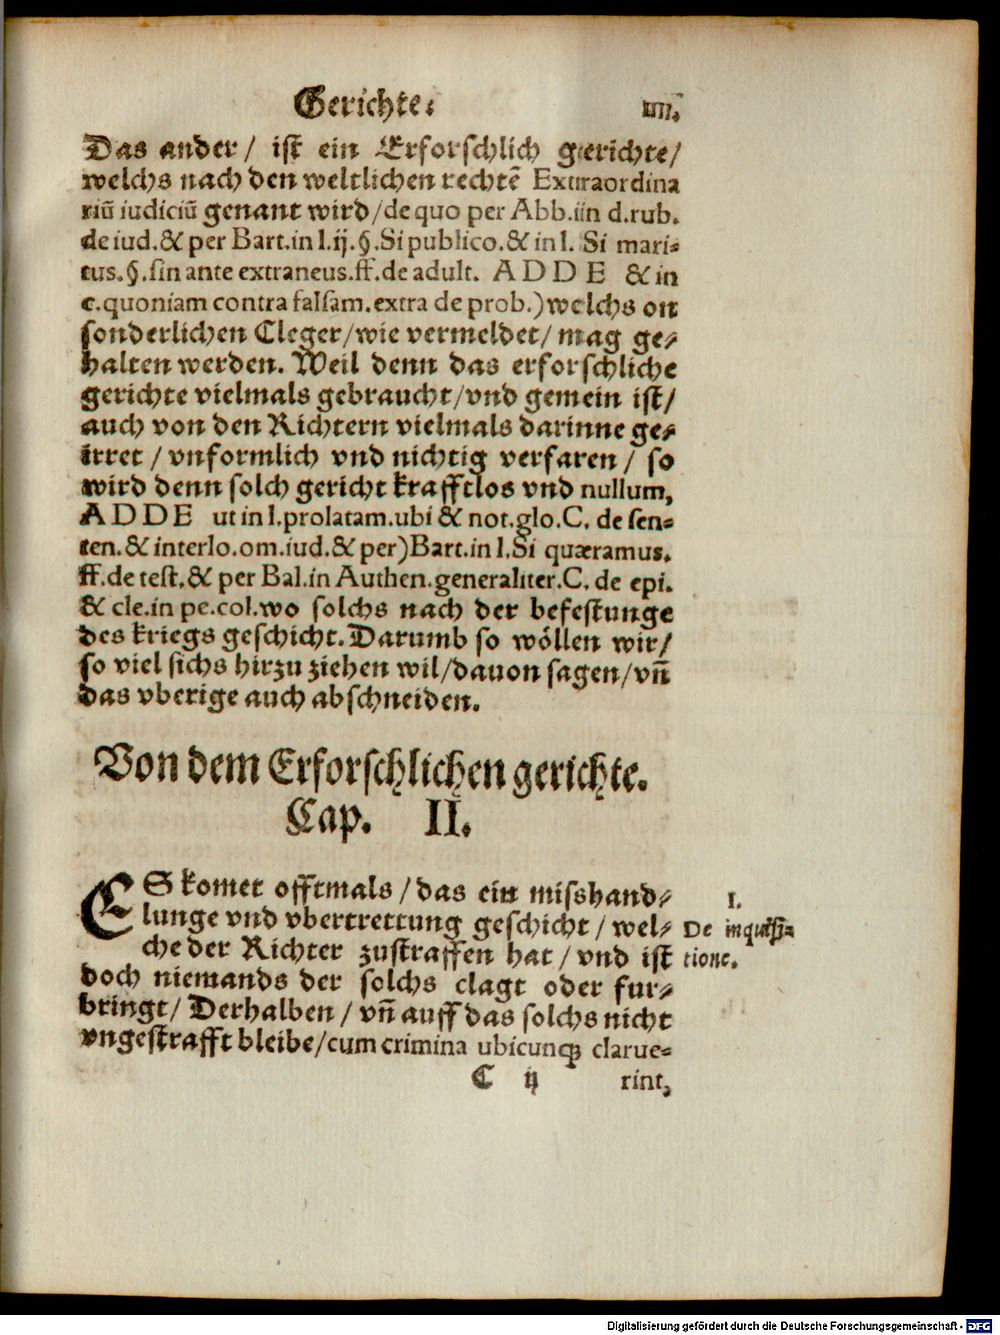 Gerichte. IIII.
Das ander/ ist ein Erforschlich gerichte/
welchs nach den weltlichen rechtẽ Extraordina
riũ iudiciũ genant wird/de quo per Abb.iin d.rub.
de iud.& per Bart.in l.ij.§.Si publico.& in l. Si mari-
tus.§.sin ante extraneus.ff.de adult. ADDE & in
c.quoniam contra falsam.extra de prob.)welchs on
sonderlichen Cleger/wie vermeldet/mag ge-
halten werden. Weil denn das erforschliche
gerichte vielmals gebraucht/vnd gemein ist/
auch von den Richtern vielmals darinne ge-
irret / vnformlich vnd nichtig verfaren / so
wird denn solch gericht krafftlos vnd nullum,
ADDE ut in l.prolatam.ubi & not.glo.C. de sen-
ten.& interlo.om.iud.& per)Bart.in l.Si quæramus.
ff.de test.& per Bal.in Authen.generaliter.C. de epi.
& cle.in pe.col.wo solchs nach der befestunge
des kriegs geschicht.Darumb so wöllen wir/
so viel sichs hirzu ziehen wil/dauon sagen/vñ
das vberige auch abschneiden.
Von dem Erforschlichen gerichte.
Cap. II.
ES komet offtmals / das ein misshand-
lunge vnd vbertrettung geschicht / wel-
che der Richter zustraffen hat / vnd ist
doch niemands der solchs clagt oder fur-
bringt/ Derhalben / vñ auff das solchs nicht
vngestrafft bleibe/cum crimina ubicunqꝫ clarue-
I.
De inquisi-
tione.
C ij rint,
Digitalisierung gefördert durch die Deutsche Forschungsgemeinschaft - DFG